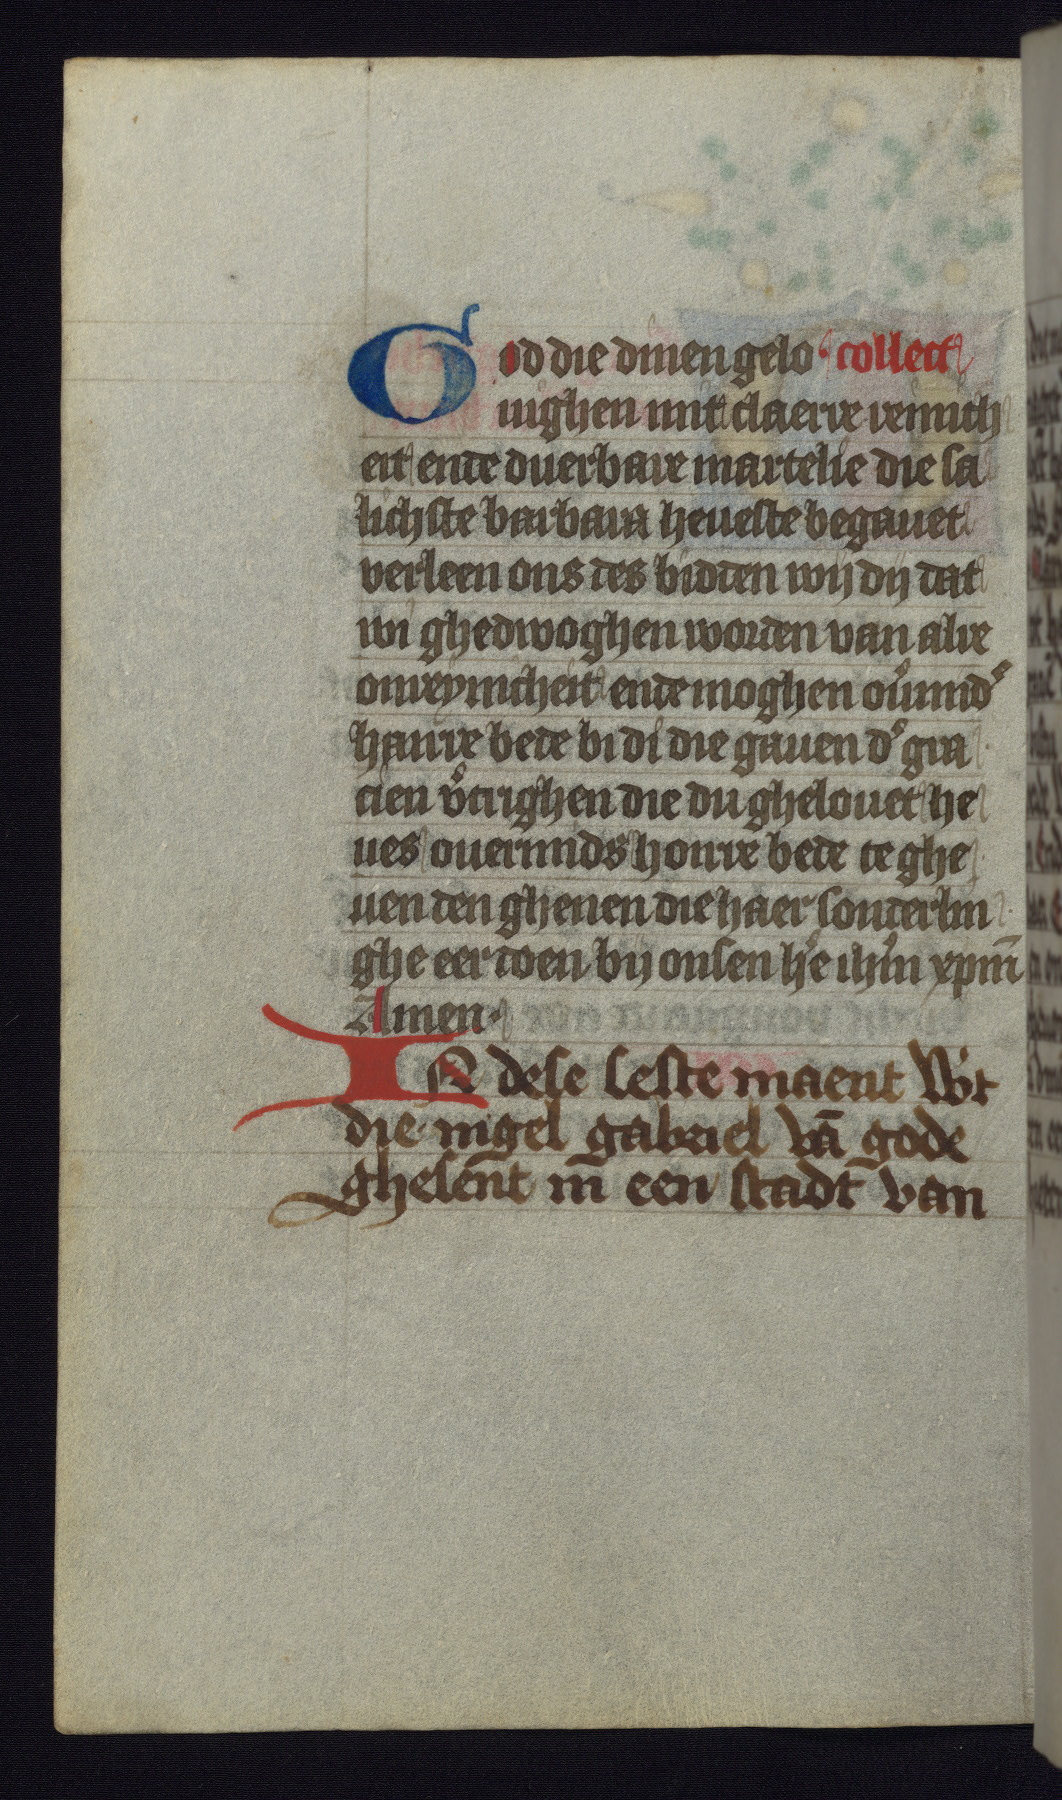 God die dinen gelo collect
uighen mit claerre reinich
eit ende duerbare martelie die sa
lichste barbara heueste begauet
verleen ons des bidden wij dij dat
wi ghedwoghen worden van alre
onreynicheit ende moghen ou̾mid̾
haurre bede bi di die gauen d̾ gra
cien v̾crighen die du ghelouet he
ues ouermids hourre bede te ghe
uen den ghenen die haer sonderlin
ghe eer doen bij onsen he̾ ihm̄ xpm̄
Amen
IN dese leste maent wt
die ingel gabriel vā gode
ghesēnt in een stadt van